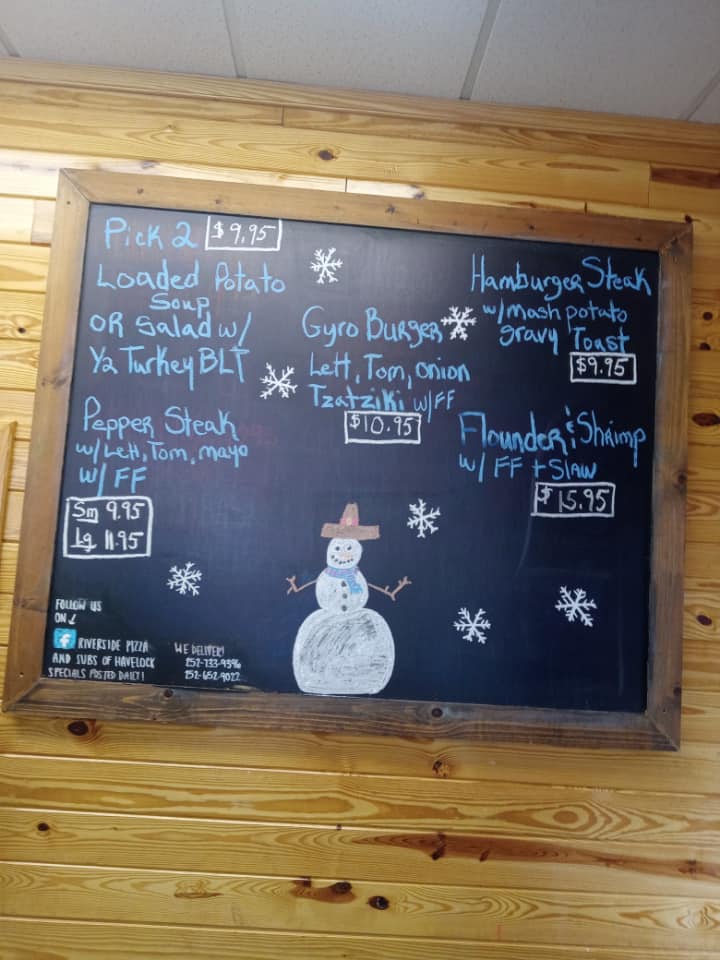 Pick 2 $9.95
Loaded Potato
Soup
OR Salad w/
1/2 Turkey BLT
Pepper Steak
w/ Lett, Tom, mayo
w/ FF
Sm 9.95
Lg 11.95
Gyro Burger
Lett, Tom, onion
Tzatziki w/FF
$10.95
Hamburger Steak
w/ mash potato
gravy Toast
$9.95
Flounder & Shrimp
w/ FF + Slaw
$15.95
FOLLOW US
ON
f RIVERSIDE PIZZA
AND SUBS OF HAVELOCK
SPECIALS POSTED DAILY!
WE DELIVER!
252-733-9396
252-652-9022